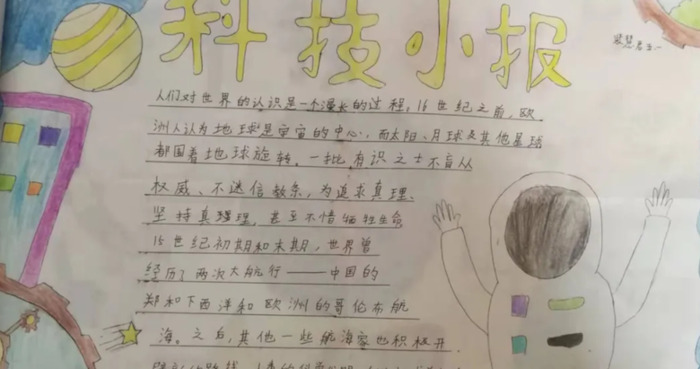 科技小报
人们对世界的认识是一个漫长的过程,16世纪之前,欧
洲人认为地球是宇宙的中心,而太阳、月球及其他星球
都围着地球旋转。一批有识之士不盲从
权威、不迷信教条,为追求真理、
坚持真理,甚至不惜牺牲生命
15世纪初期和末期,世界曾
经历了两次大航行——中国的
郑和下西洋和欧洲的哥伦布航
海。之后,其他一些航海家也积极开